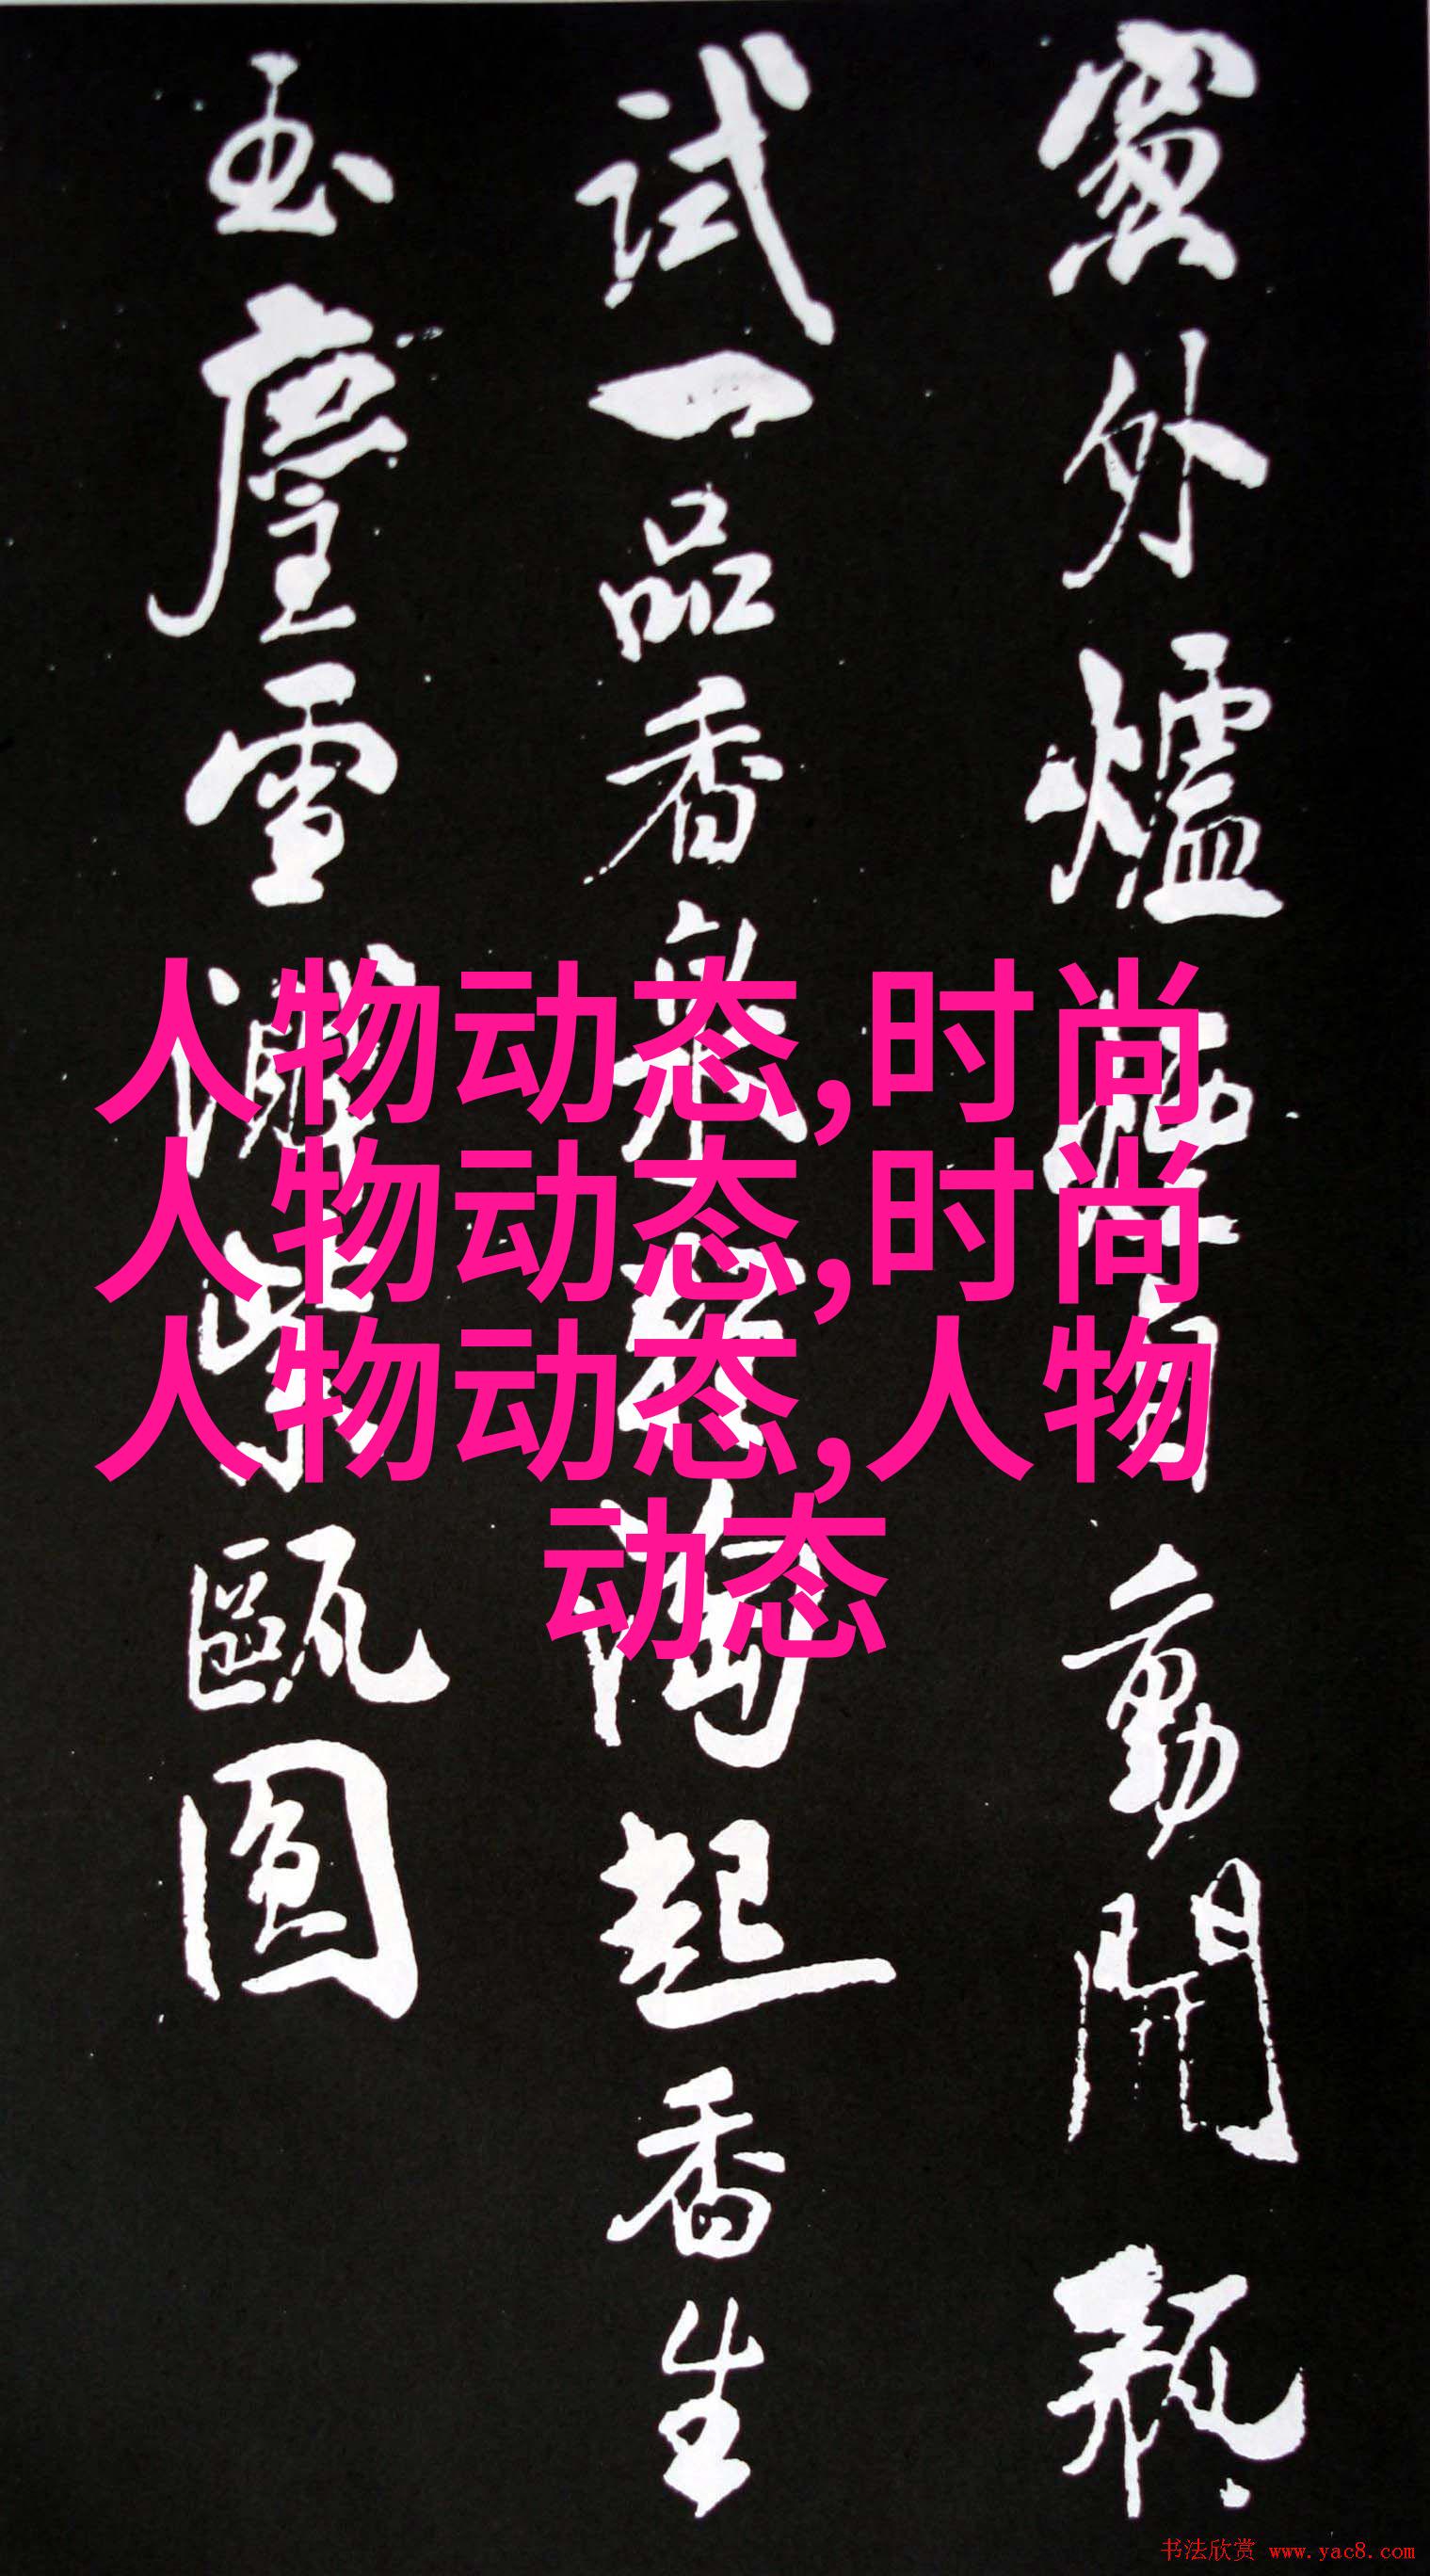 窻外爐煙自動開瓶
試一品香泉輕淘起香生
玉塵雪濺紫甌圓
人物动态,时尚
人物动态,时尚
人物动态,人物
动态
书法欣赏 www.yac8.com